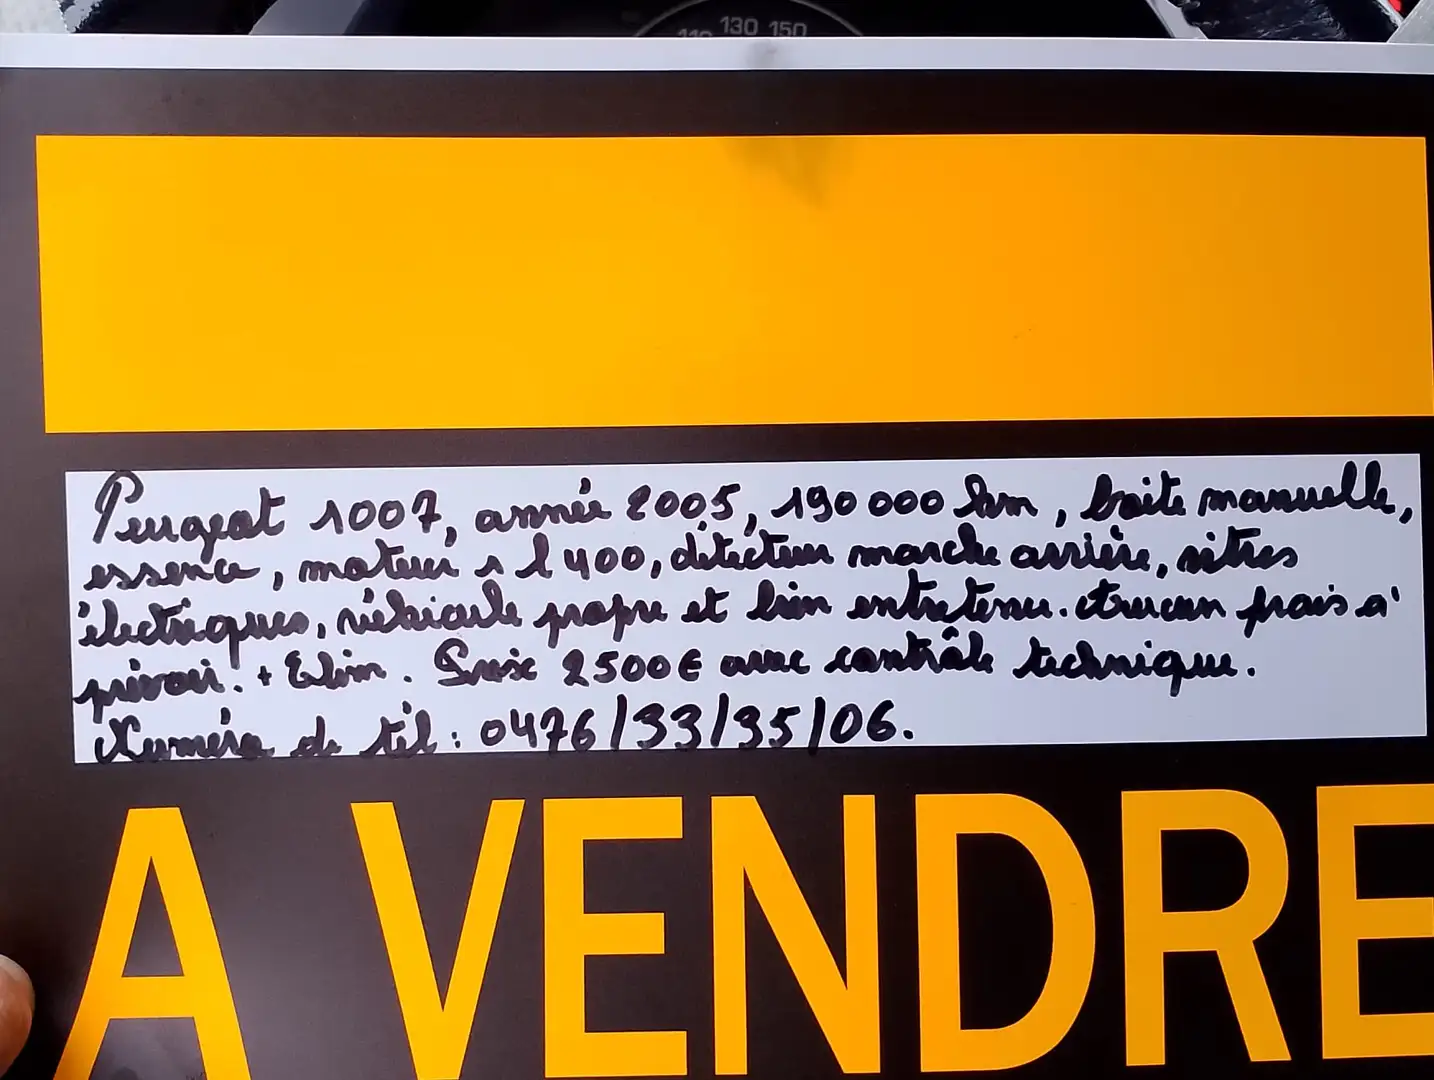 130 150
Peugeot 1007, année 2005, 190 000 km, boîte manuelle,
essence, moteur 1 l 400, détecteur marche arrière, vitres
électriques, véhicule propre et bien entretenu. Aucun frais à
prévoir. + Clim. Prix 2500 € avec contrôle technique.
Numéro de tél : 0476/33/35/06.
A VENDRE